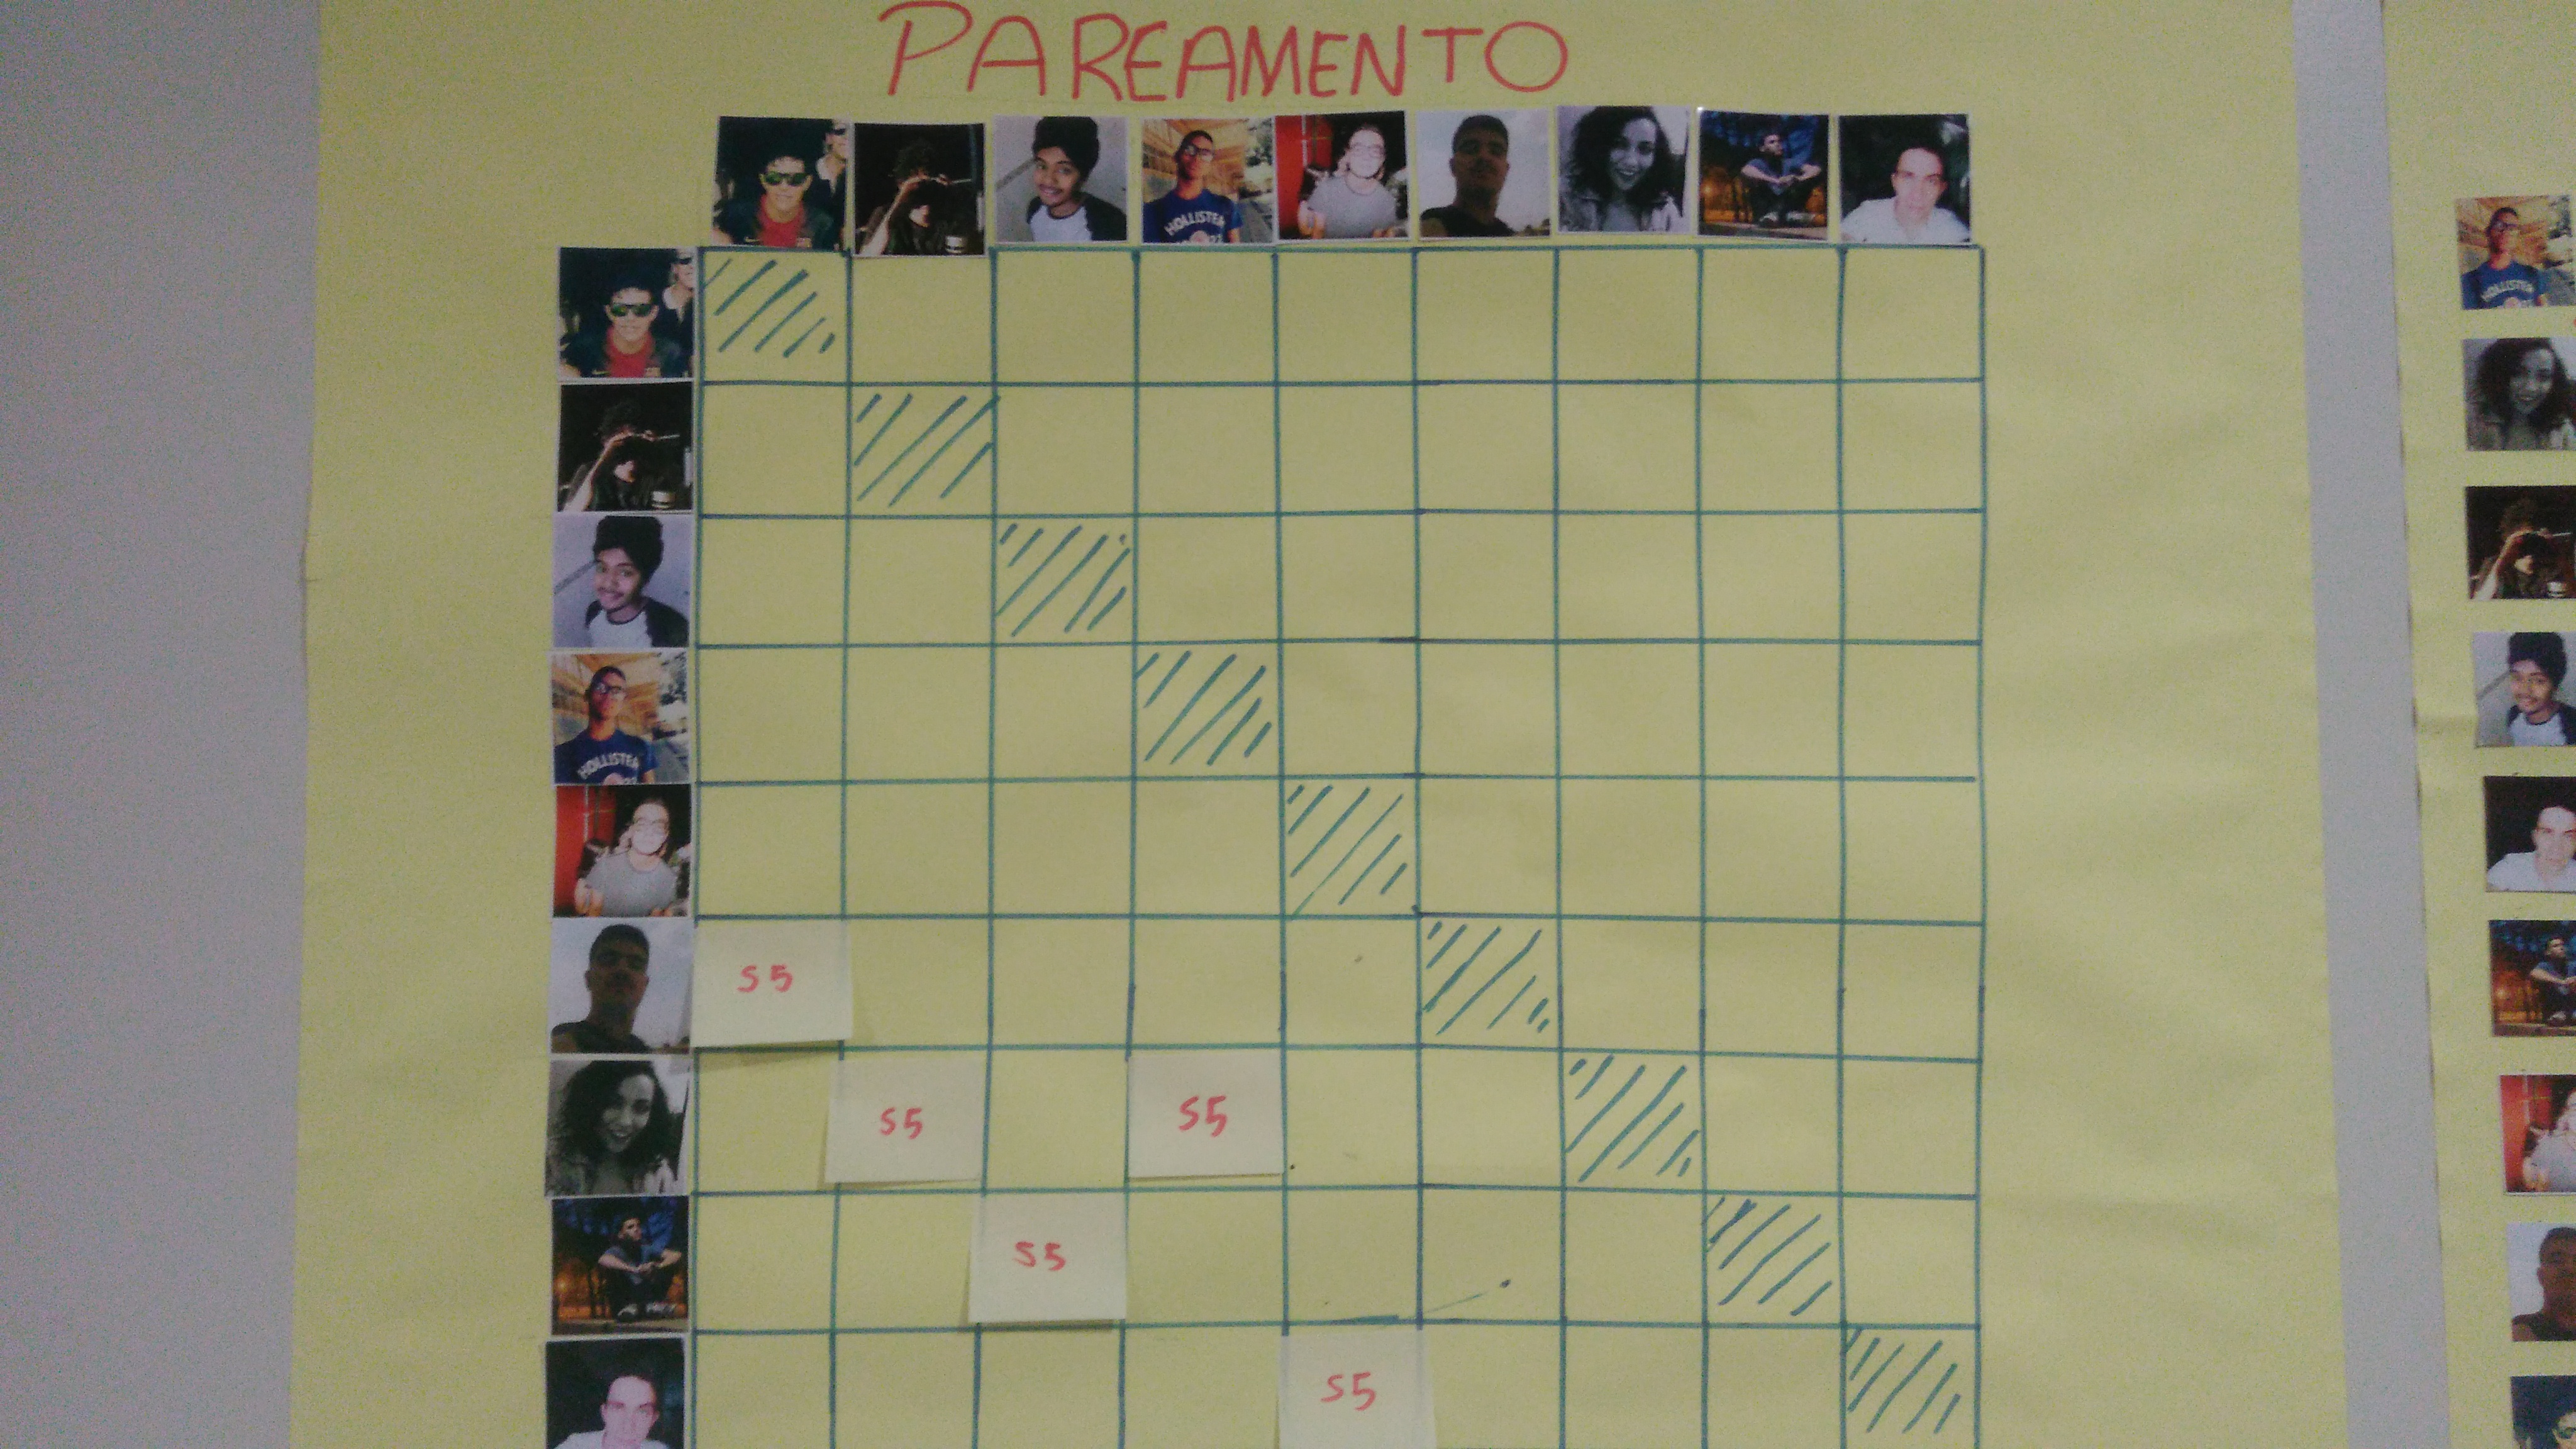 PAREAMENTO
HOLLISTER
HOLLISTER
HOLLISTER
S5
S5
S5
S5
S5